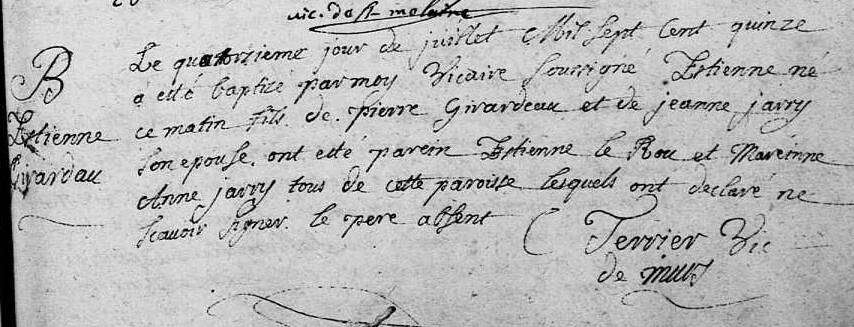 vic. de st melaine
B
Estienne
Girardau
Le quatorzieme jour de juillet Mil sept Cent quinze
a esté baptisé par moy Vicaire soussigné Estienne né
ce matin fils de pierre Girardeau et de jeanne jarry
son epouse. ont esté parein Estienne le Rou et Mareinne
Anne jarry tous de cette paroisse lesquels ont declaré ne
scavoir signer. le pere absent
Terrier Vic
de murs